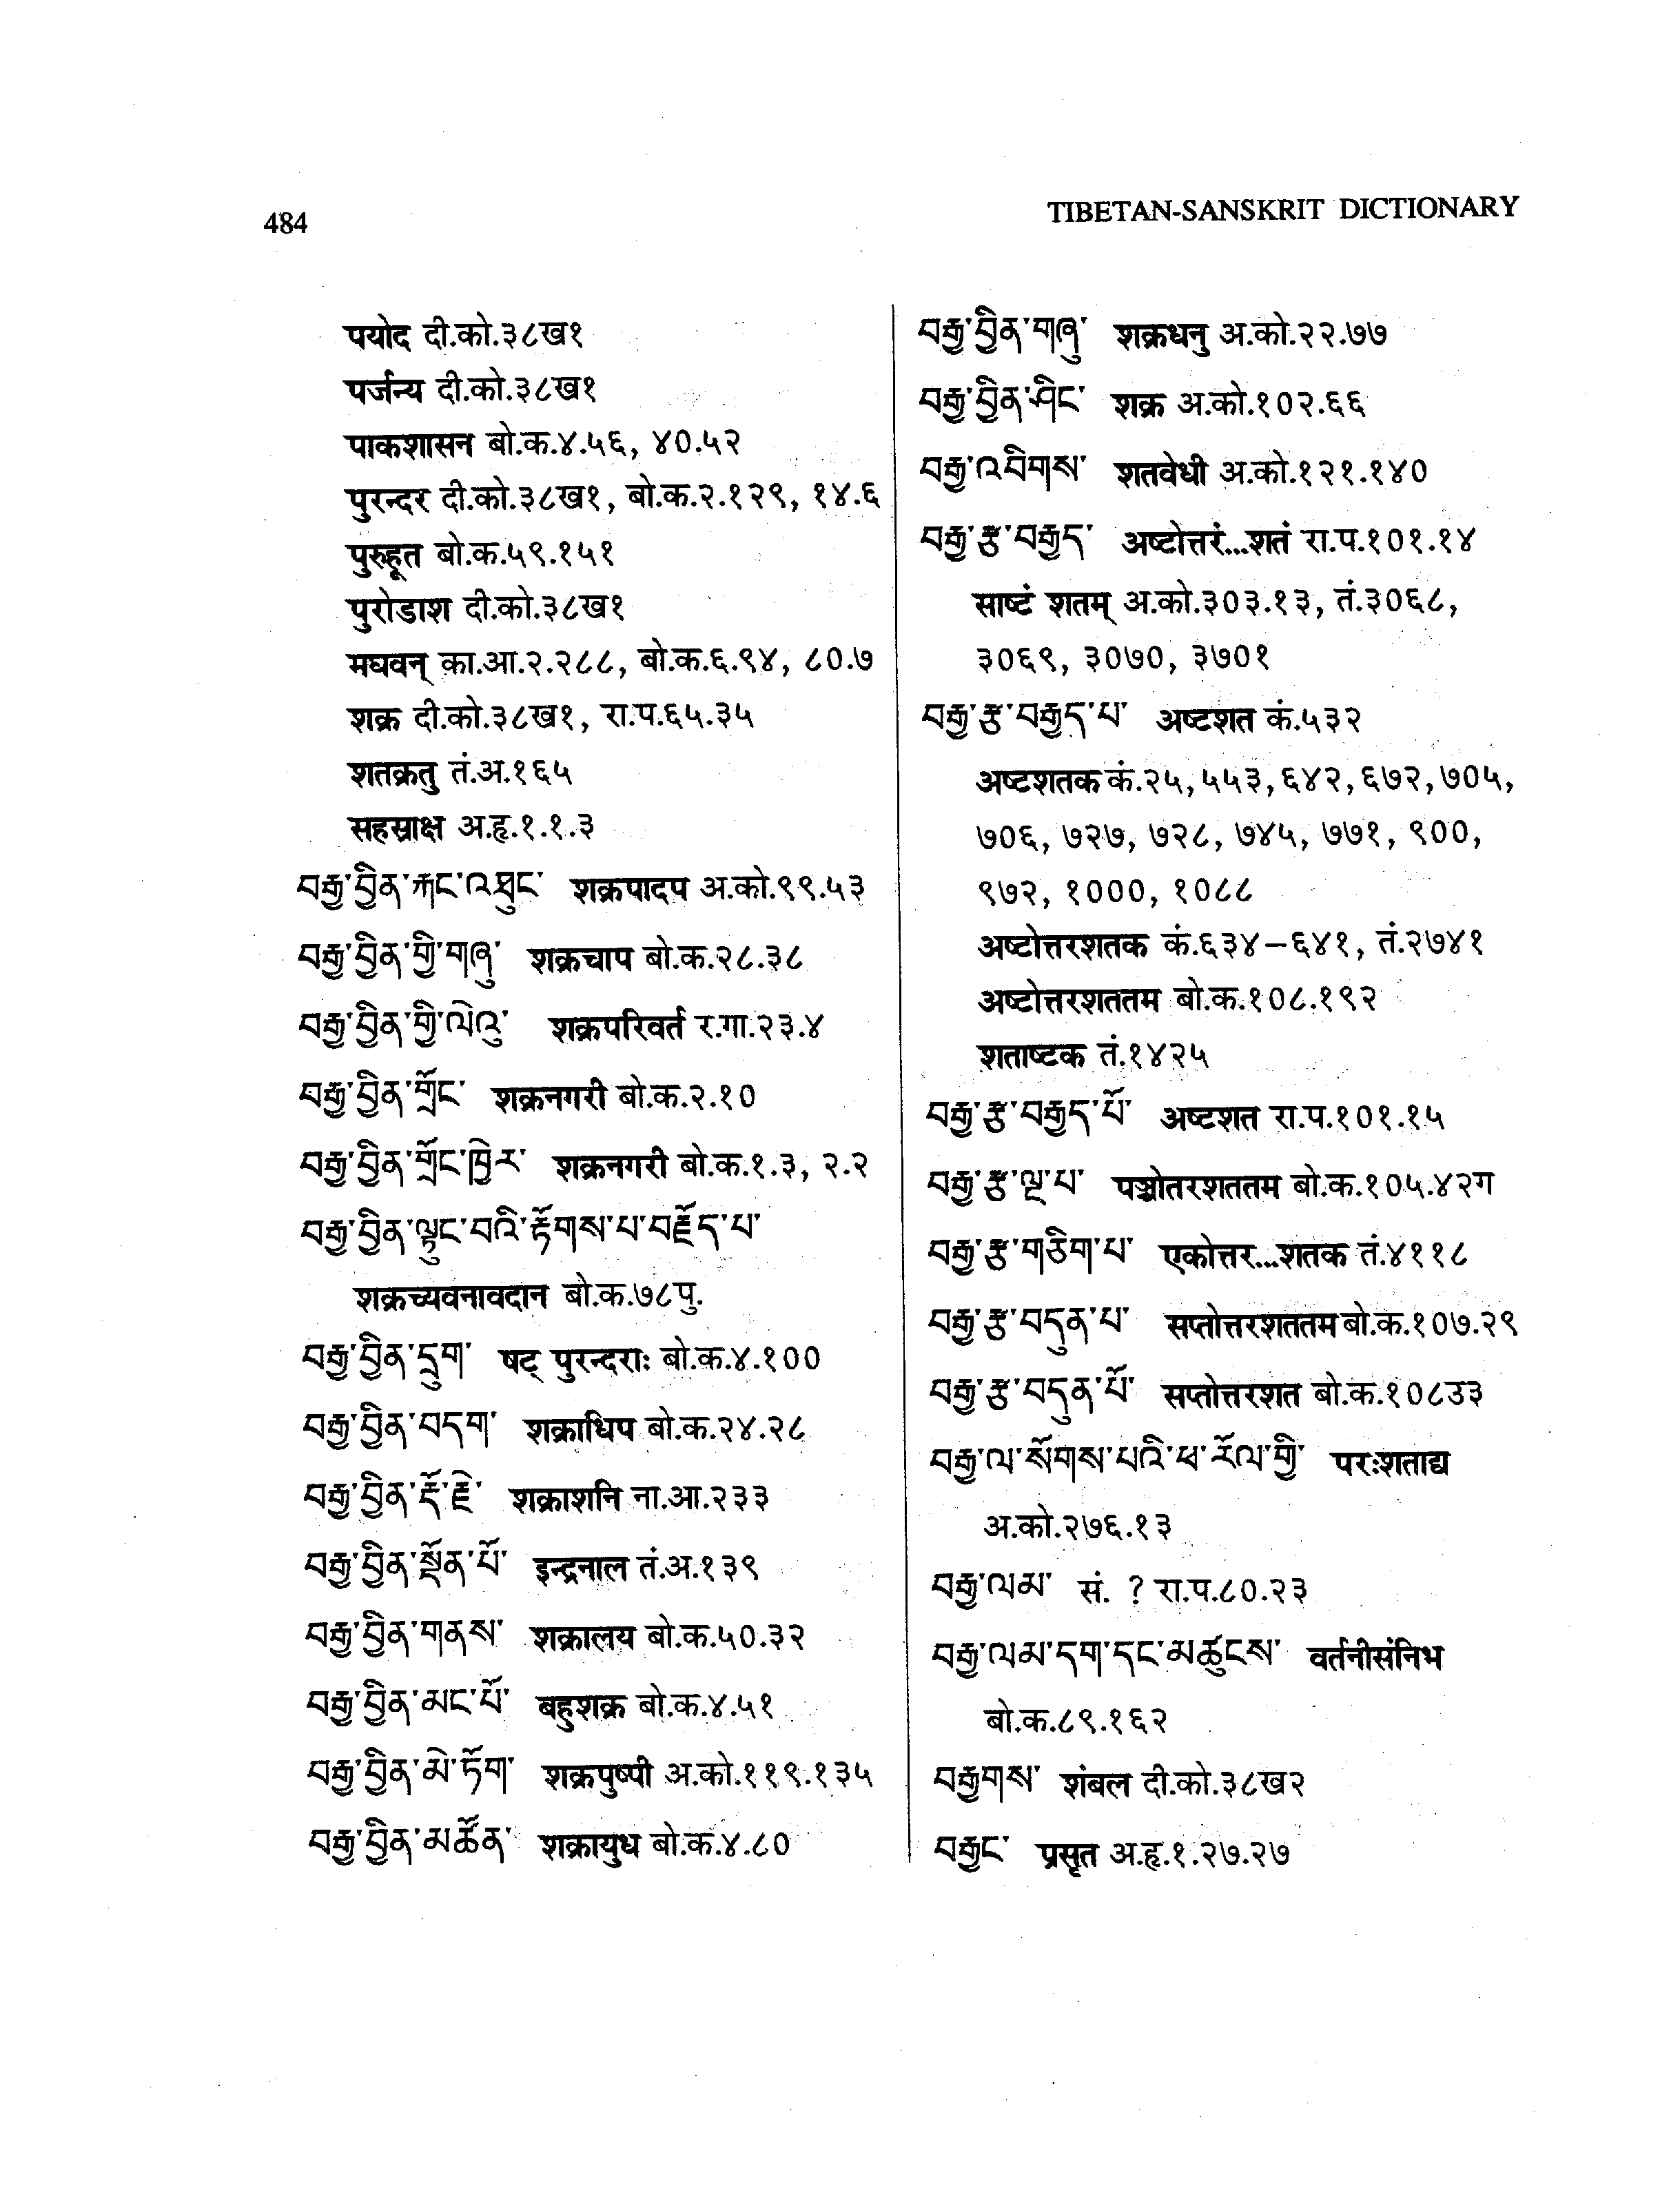 484
TIBETAN-SANSKRIT DICTIONARY
पयोद दी.को.३८ख१
पर्जन्य दी.को.३८ख१
पाकशासन बो.क.४.५६, ४०.५२
पुरन्दर दी.को.३८ख१, बो.क.२.१२९, १४.६
पुरुहूत बो.क.५९.१५१
पुरोडाश दी.को.३८ख१
मघवन् का.आ.२.२८८, बो.क.६.९४, ८०.७
शक्र दी.को.३८ख१, रा.प.६५.३५
शतक्रतु तं.अ.१६५
सहस्राक्ष अ.हृ.१.१.३
བརྒྱ་བྱིན་རྐང་འཐུང་ शक्रपादप अ.को.९९.५३
བརྒྱ་བྱིན་གྱི་གཞུ་ शक्रचाप बो.क.२८.३८
བརྒྱ་བྱིན་གྱི་ལེའུ་ शक्रपरिवर्त र.गा.२३.४
བརྒྱ་བྱིན་གྲོང་ शक्रनगरी बो.क.२.१०
བརྒྱ་བྱིན་གྲོང་ཁྱེར་ शक्रनगरी बो.क.१.३, २.२
བརྒྱ་བྱིན་ལྟུང་བའི་རྟོགས་པ་བརྗོད་པ་
शक्रच्यवनावदान बो.क.७८पु.
བརྒྱ་བྱིན་དྲུག་ षट् पुरन्दराः बो.क.४.१००
བརྒྱ་བྱིན་བདག་ शक्राधिप बो.क.२४.२८
བརྒྱ་བྱིན་རྡོ་རྗེ་ शक्राशनि ना.आ.२३३
བརྒྱ་བྱིན་སྔོན་པོ་ इन्द्रनाल तं.अ.१३९
བརྒྱ་བྱིན་གནས་ शक्रालय बो.क.५०.३२
བརྒྱ་བྱིན་མང་པོ་ बहुशक्र बो.क.४.५१
བརྒྱ་བྱིན་མེ་ཏོག་ शक्रपुष्पी अ.को.११९.१३५
བརྒྱ་བྱིན་མཚོན་ शक्रायुध बो.क.४.८०
བརྒྱ་བྱིན་གཞུ་ शक्रधनु अ.को.२२.७७
བརྒྱ་བྱིན་ཤིང་ शक्र अ.को.१०२.६६
བརྒྱ་འབིགས་ शतवेधी अ.को.१२१.१४०
བརྒྱ་རྩ་བརྒྱད་ अष्टोत्तरं...शतं रा.प.१०१.१४
साष्टं शतम् अ.को.३०३.१३, तं.३०६८,
३०६९, ३०७०, ३७०१
བརྒྱ་རྩ་བརྒྱད་པ་ अष्टशत कं.५३२
अष्टशतक कं.२५, ५५३, ६४२, ६७२, ७०५,
७०६, ७२७, ७२८, ७४५, ७७१, ९००,
९७२, १०००, १०८८
अष्टोत्तरशतक कं.६३४-६४१, तं.२७४१
अष्टोत्तरशततम बो.क.१०८.१९२
शताष्टक तं.१४२५
བརྒྱ་རྩ་བརྒྱད་པོ་ अष्टशत रा.प.१०१.१५
བརྒྱ་རྩ་ལྔ་པ་ पञ्चोतरशततम बो.क.१०५.४२ग
བརྒྱ་རྩ་གཅིག་པ་ एकोत्तर...शतक तं.४११८
བརྒྱ་རྩ་བདུན་པ་ सप्तोत्तरशततम बो.क.१०७.२९
བརྒྱ་རྩ་བདུན་པོ་ सप्तोत्तरशत बो.क.१०८उ३
བརྒྱ་ལ་སོགས་པའི་ཕ་རོལ་གྱི་ परःशताद्य
अ.को.२७६.१३
བརྒྱ་ལམ་ सं. ? रा.प.८०.२३
བརྒྱ་ལམ་དག་དང་མཚུངས་ वर्तनीसंनिभ
बो.क.८९.१६२
བརྒྱགས་ शंबल दी.को.३८ख२
བརྒྱང་ प्रसृत अ.हृ.१.२७.२७